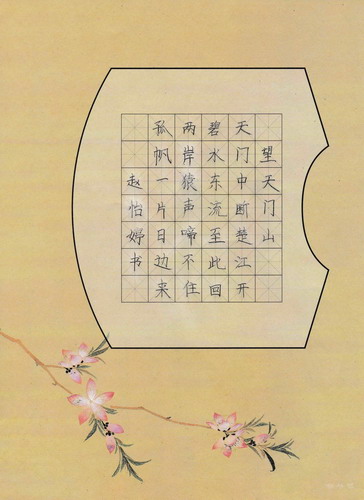 望天门山
天门中断楚江开
碧水东流至此回
两岸猿声啼不住
孤帆一片日边来
赵怡婷书